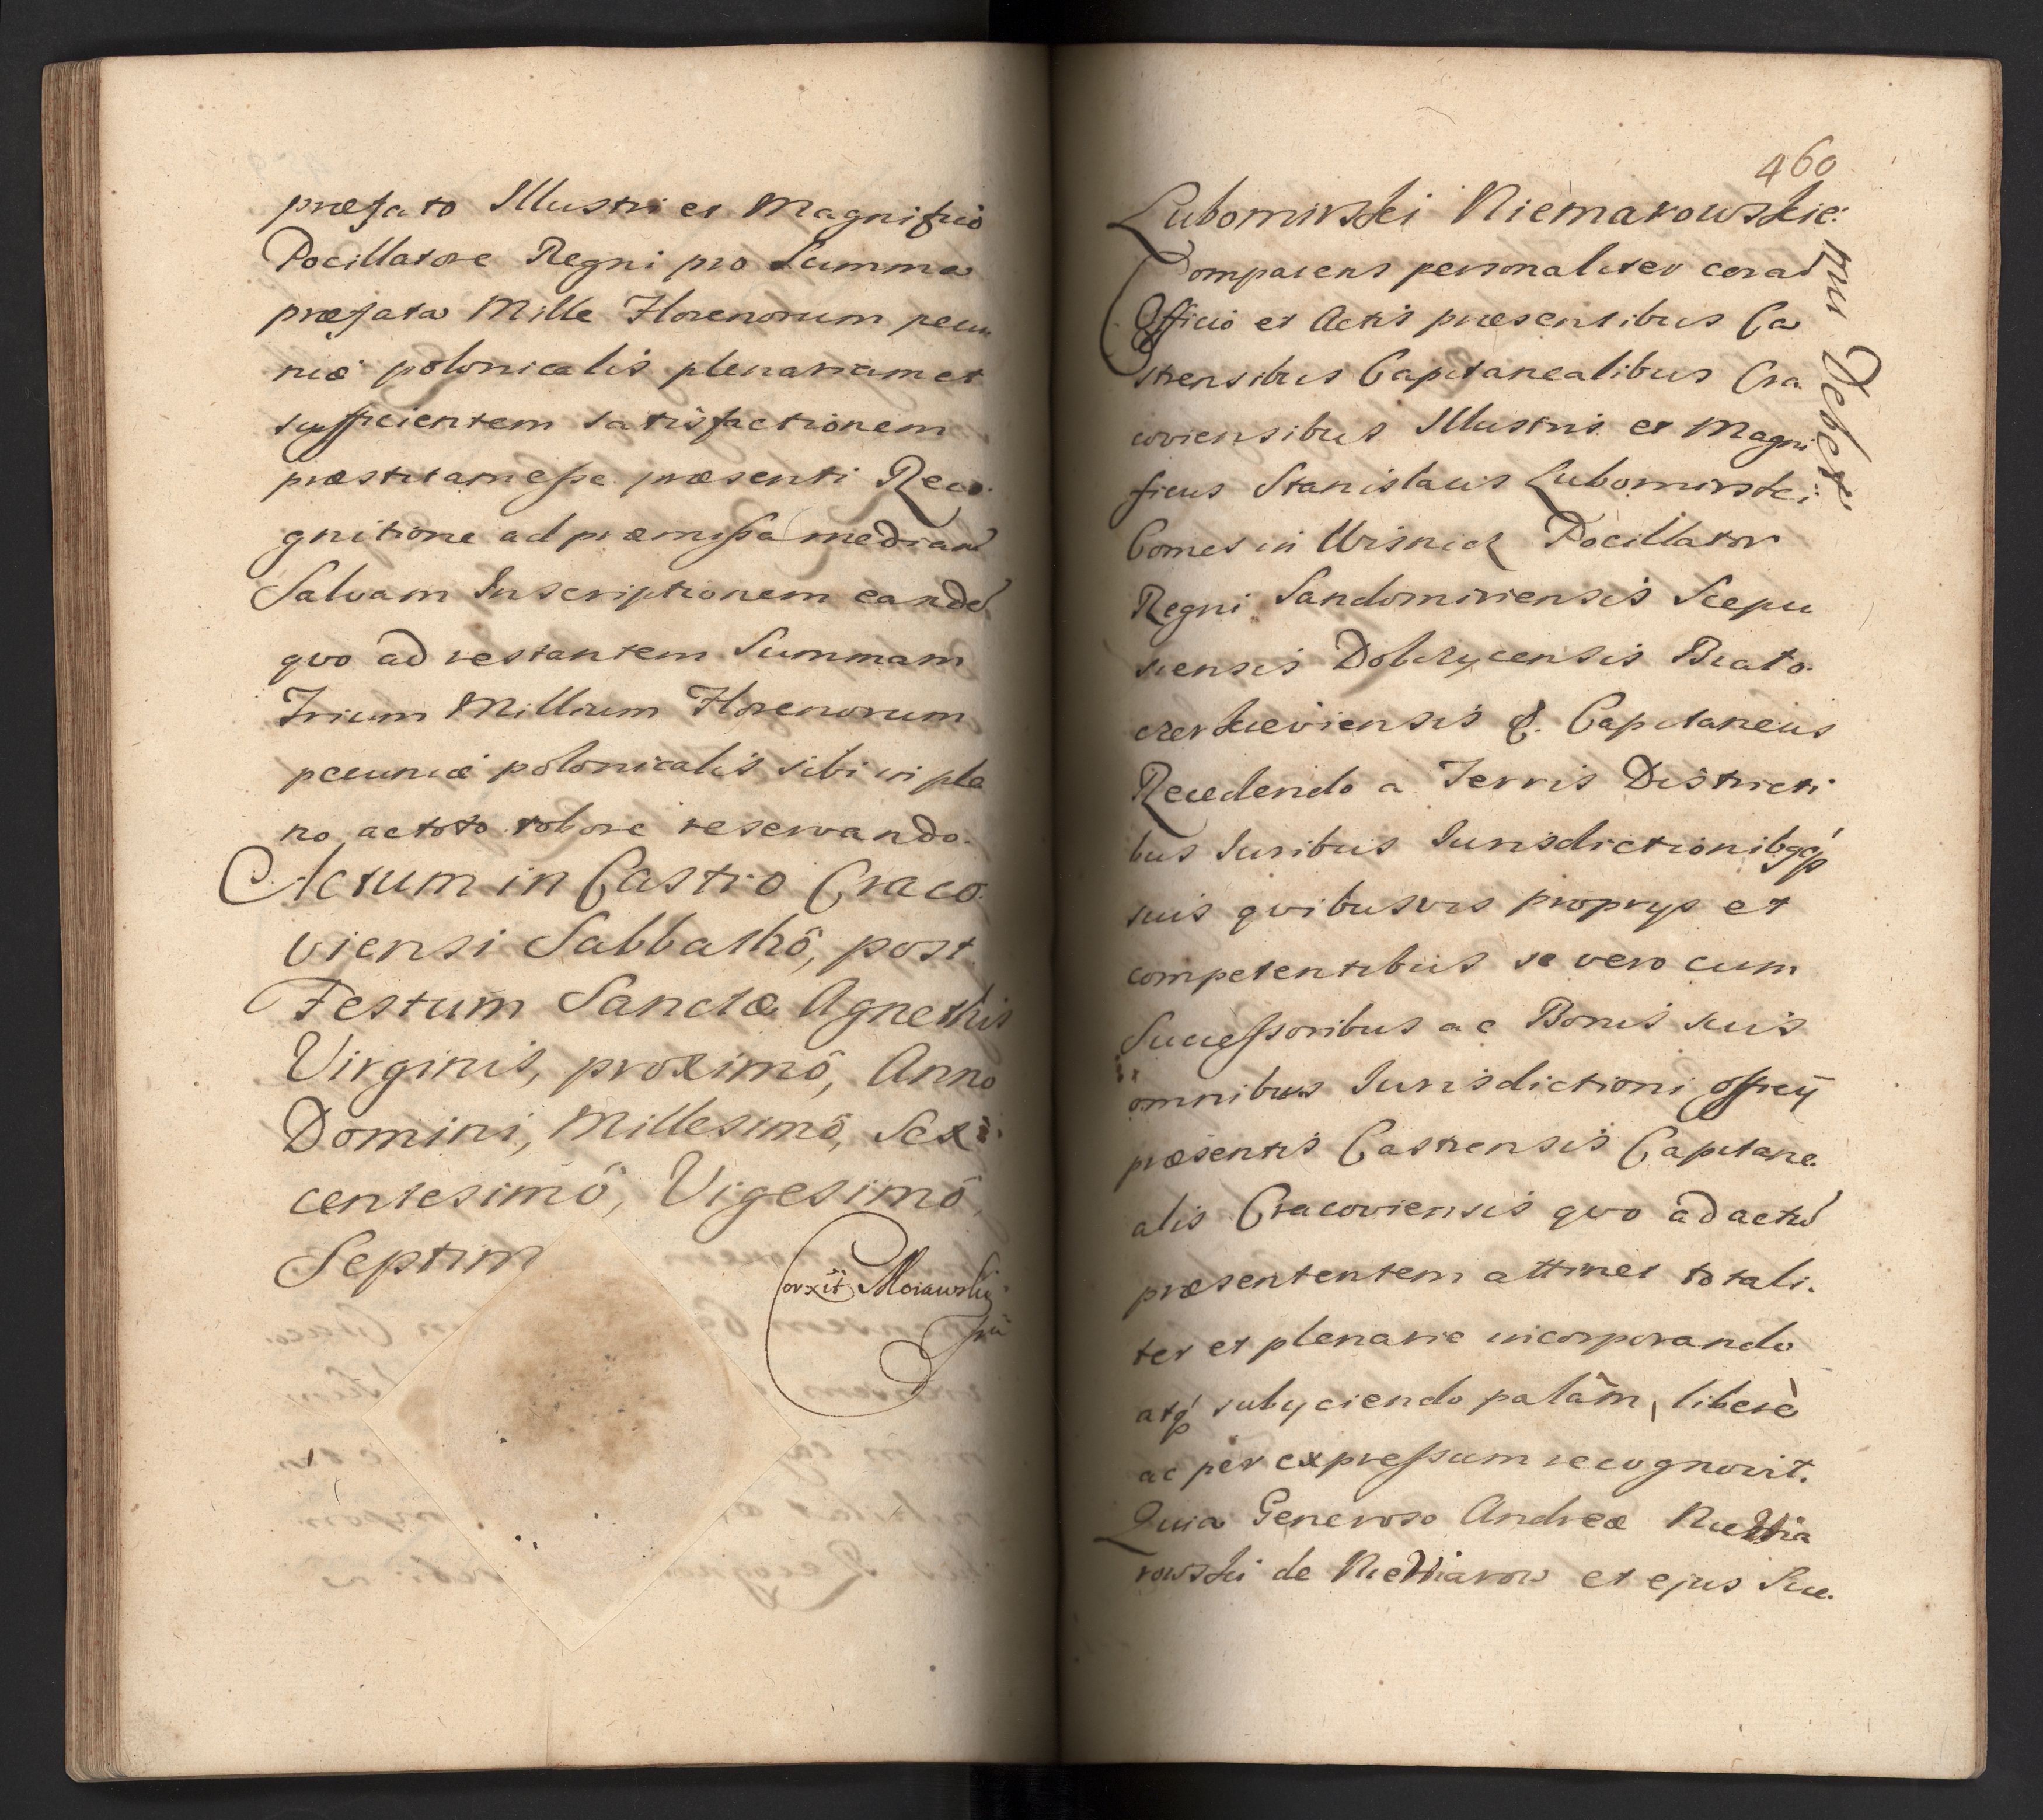 præfato Illustri et Magnifico
Pocillatore Regni pro Summa
præfata Mille Florenorum pecu
niæ polonicalis plenariam et
sufficientem satisfactionem
præstitam esse præsenti Reco
gnitione ad præmissa median
Salvam Inscriptionem eandē
qvo ad restantem Summam
Trium Millium Florenorum
pecuniæ polonicalis sibi in ple
no ac toto robore reservando.
Actum in Castro Craco
viensi Sabbathô, post
Festum Sanctæ Agnethis
Virginis, proximô, Anno
Domini, Millesimô, Sex
centesimô, Vigesimô,
Septim
Corxit Morawsky
460
Lubomirski Niemarowskie:
mu Debet.
Comparens personaliter corā
Officio et Actis præsentibus Ca
strensibus Capitanealibus Cra
coviensibus Illustris et Magni
ficus Stanislaus Lubomirski:
Comes in Wisnicz Pocillator
Regni Sandomiriensis Scepu
siensis Dobczycensis Biało
cerkieviensis &. Capitaneus
Recedendo a Terris Districti
bus Iuribus Iurisdictionibqq́
suis qvibusvis proprys et
competentibus se vero cum
Successoribus ac Bonis suis
omnibus Iurisdictioni officÿ
præsentis Castrensis Capitane
alis Cracoviensis qvo ad actū
præsententem attinet totali.
ter et plenarie incorporando
atq́ subyciendo palâm, liberè
ac per expressum recognovit.
Quia Generoso Andreæ
de et ejus Suc.